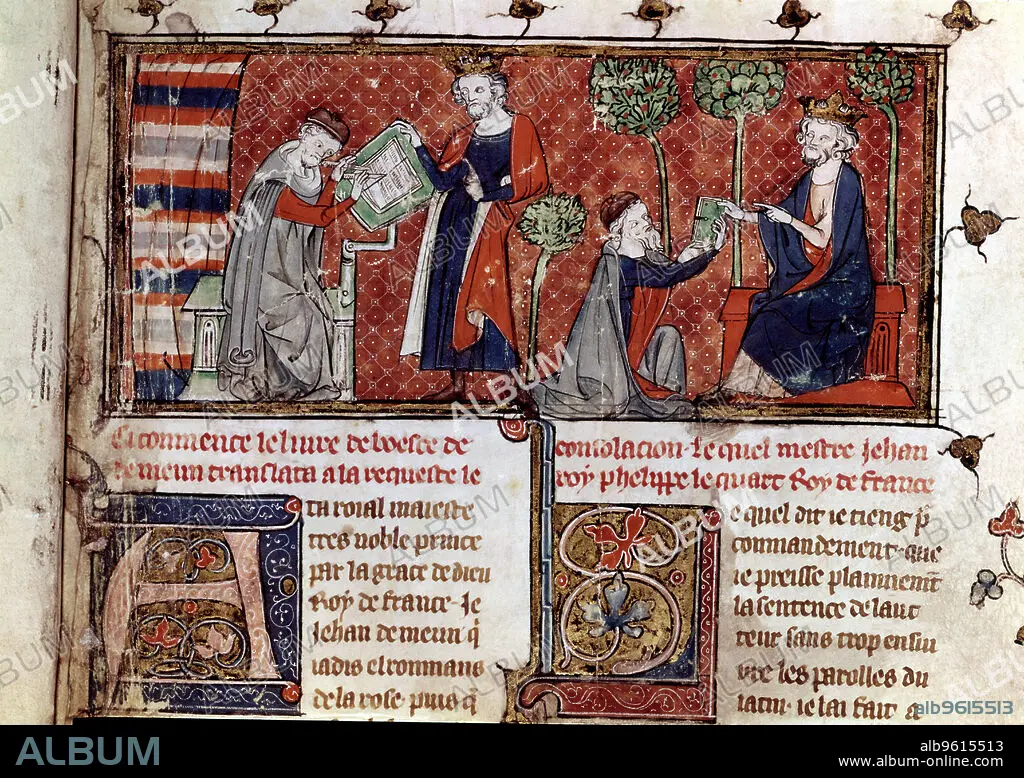 Ci commence le livre de boece de consolacion. Le quel mestre Jehan
de meun translata a la requeste le roy phelippe le quart Roy de france
A ta roial maieste
tres noble prince
par la grace de dieu
Roy de france. Je
Jehan de meun q̄
iadis el rommans
de la rose. puis q̄
Le quel dit ie tieng p̄
commandement. que
ie preisse plainnem̄t
la sentence de lauc
teur sans trop ensui
vre les parolles du
latin. ie lai fait a
ALBUM
alb9615513
ALBUM
alb9615513
www.album-online.com